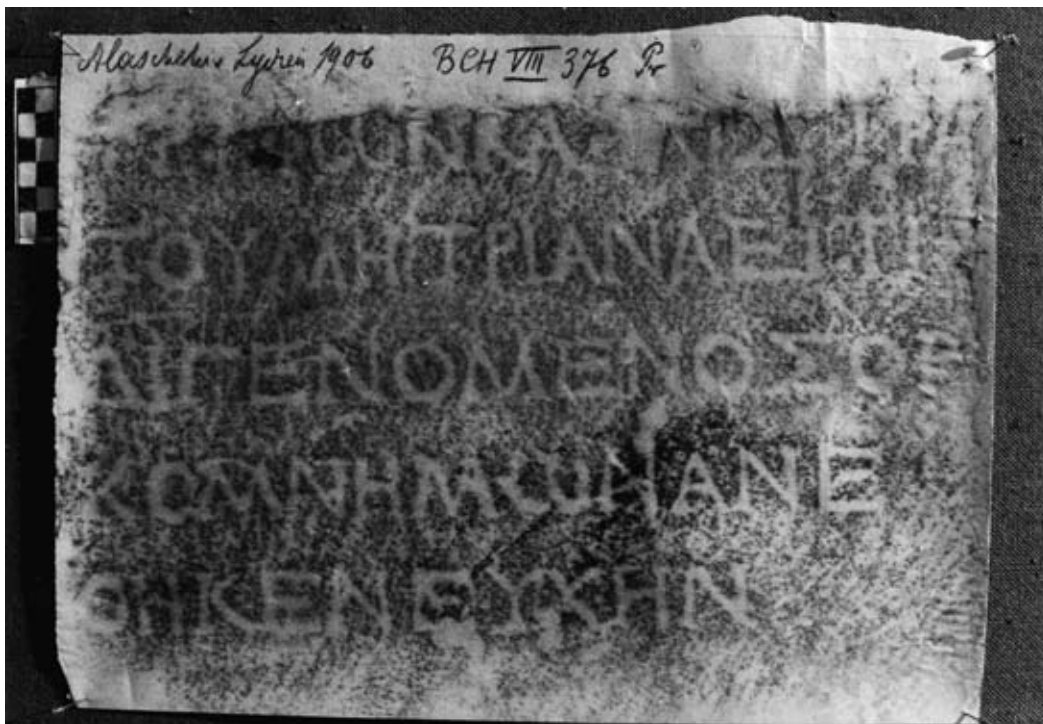 Alaschehir Lydien 1906 BCH VIII 376 Pr
ΩΝΚΑ
ΤΟΥΜΗΤΡΙΑΝΑΕΙΤΙ
ΔΙΓΕΝΟΜΕΝΟΣ
ΚΟΜΝΗΜΩΝΑΝΕ
ΘΗΚΕΝΕΥΧΗΝ